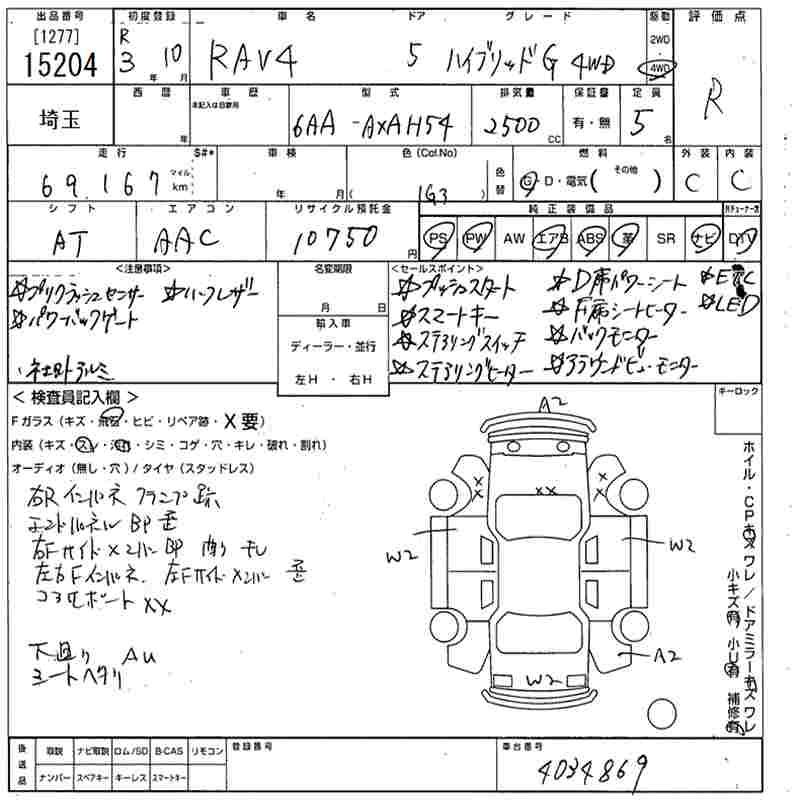 出品番号 初度登録 車名 ドア グレード 駆動 評価点
[1277] R 2WD
15204 3年 10月 RAV4 5 ハイブリッドG 4WD 4WD R
西暦 車歴 型式 排気量 保証書 定員
埼玉 年 本記入は自家用 6AA -AXAH54 2500CC 有・無 5名
走行 S#* 車検 色(Col.No) 燃料 外装 内装
69,167 マイル km 年 月 ( 1G3 ) 色替 G・D・電気( その他 ) C C
シフト エアコン リサイクル預託金 純正装備品
AT AAC 10750円 PS PW AW エアB ABS 革 SR ナビ DTV
<注意事項> 名変期限 <セールスポイント>
☆プリクラッシュセンサー ☆ハーフレザー 月 日 ☆プッシュスタート ☆D席パワーシート ☆ETC
☆パワーバックゲート 輸入車 ☆スマートキー ☆F席シートヒーター ☆LED
ディーラー・並行 ☆ステアリングスイッチ ☆バックモニター
・社外アルミ 左H・右H ☆ステアリングヒーター ☆アラウンドビューモニター
<検査員記入欄> キーロック
Fガラス(キズ・飛石・ヒビ・リペア跡・X要)
内装(キズ・スレ・汚れ・シミ・コゲ・穴・キレ・破れ・割れ)
オーディオ(無し・穴)/タイヤ(スタッドレス)
右Rインパネ クランプ跡
エンドパネル BP 歪
右Fサイドメンバー BP 曲り
左右Fインパネ、左Fサイドメンバー 歪
コアサポート XX
下廻り AU
シートヘタリ
A2
X X XX X X
W2 W2
A2
W2
ホイル・CPキズワレ/ドアミラーキズワレ
小キズ有 小U有 補修有
後送品 取説 ナビ取説 ロム/SD B-CAS リモコン 登録番号 車台番号
ナンバー スペアキー キーレス スマートキー 4034869